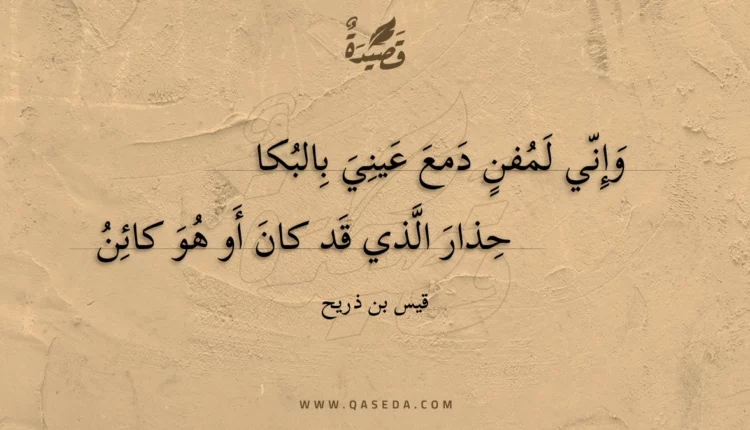 قَصِيْدَةٌ
وَإِنّي لَمُفنٍ دَمعَ عَينِيَ بِالبُكا
حِذارَ الَّذي قَد كانَ أَو هُوَ كائِنُ
قيس بن ذريح
WWW.QASEDA.COM